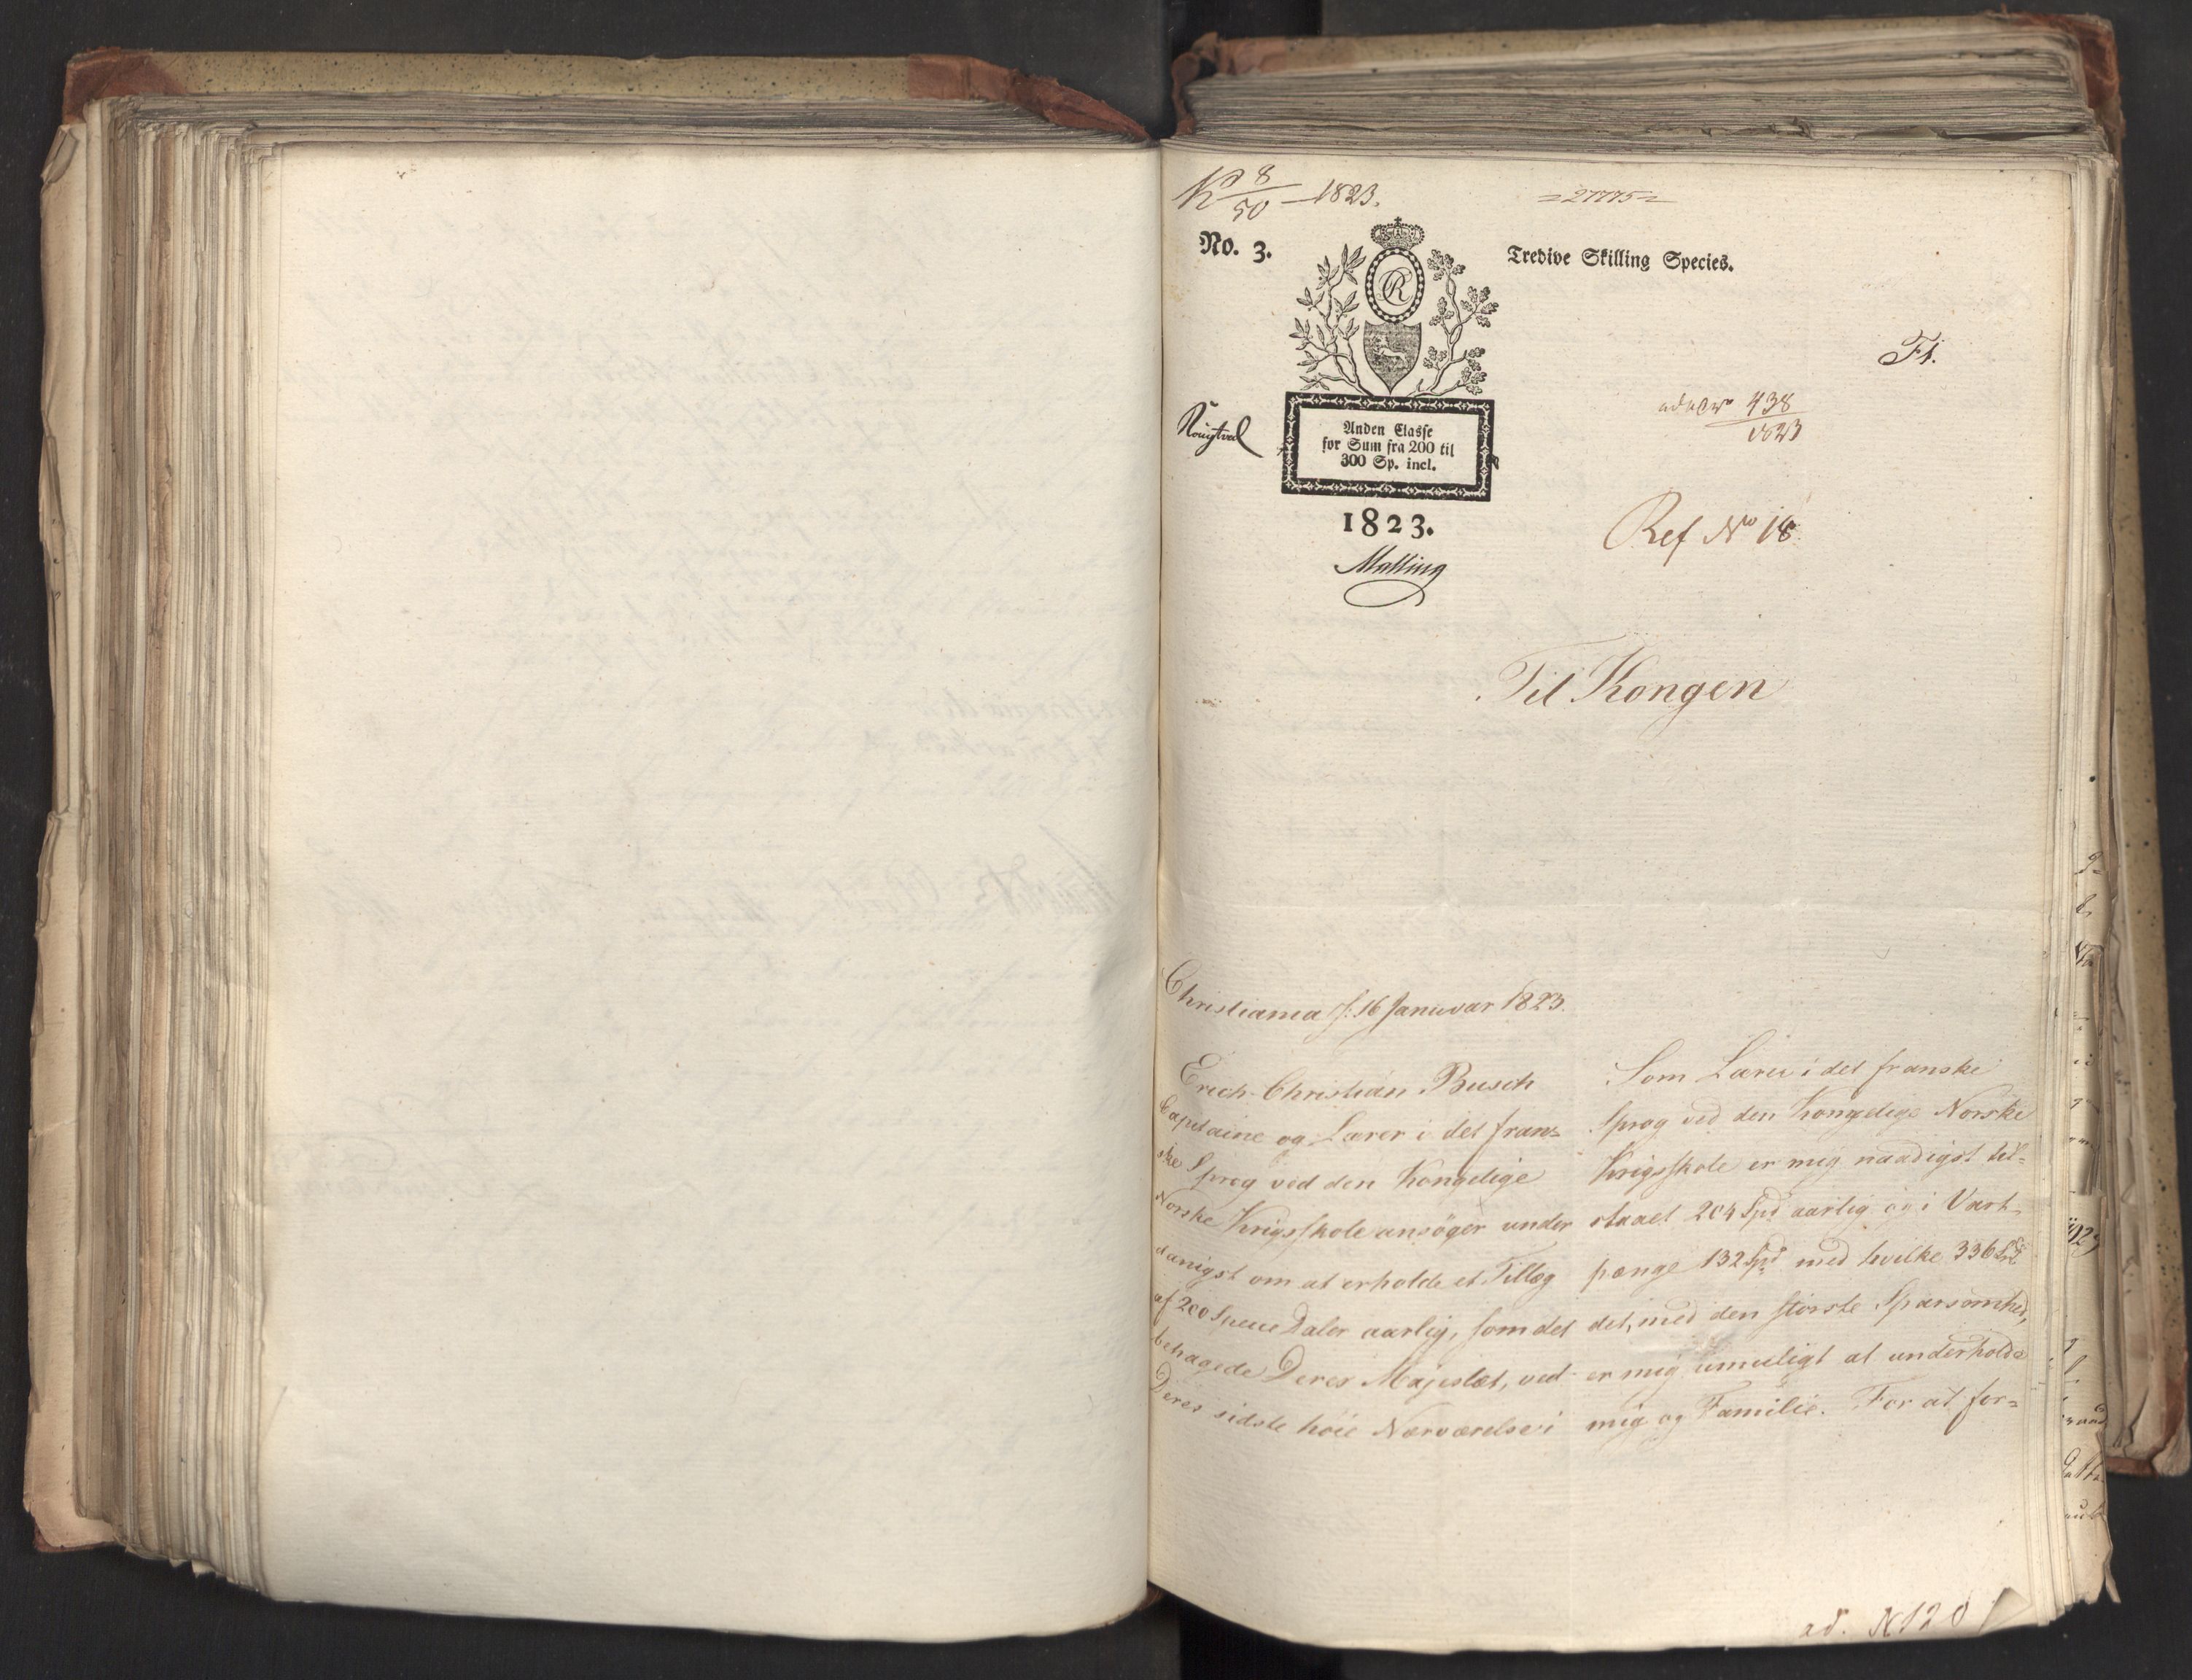 No 8/50 — 1823.
=27775=
No. 3.
Tredive Skilling Species.
CR
F1.
438
1823
Anden Classe
for Sum fra 200 til
300 Sp. incl.
1823.
Malling
Ref No 18.
Til Kongen
Christiania d: 16 Januar 1823.
Erich Christian Busch
Capitaine og Lærer i det fran=
ske Sprog ved den Kongelige
Norske Krigsskole ansöger under
danigst om at erholde et Tillæg
af 200 Specie Daler aarlig, som det
behagede Deres Majestæt, ved
Deres sidste höie Nærværelse i
Som Lærer i det franske
Sprog ved den Kongelige Norske
Krigsskole er mig naadigst til=
staaet 204 Spd aarlig og i Vart=
penge 132 Spd med hvilke 336 Spd
det, med den störste Sparsomhed,
er mig umuligt at underholde
mig og Familie. For at for=
ad. N 120